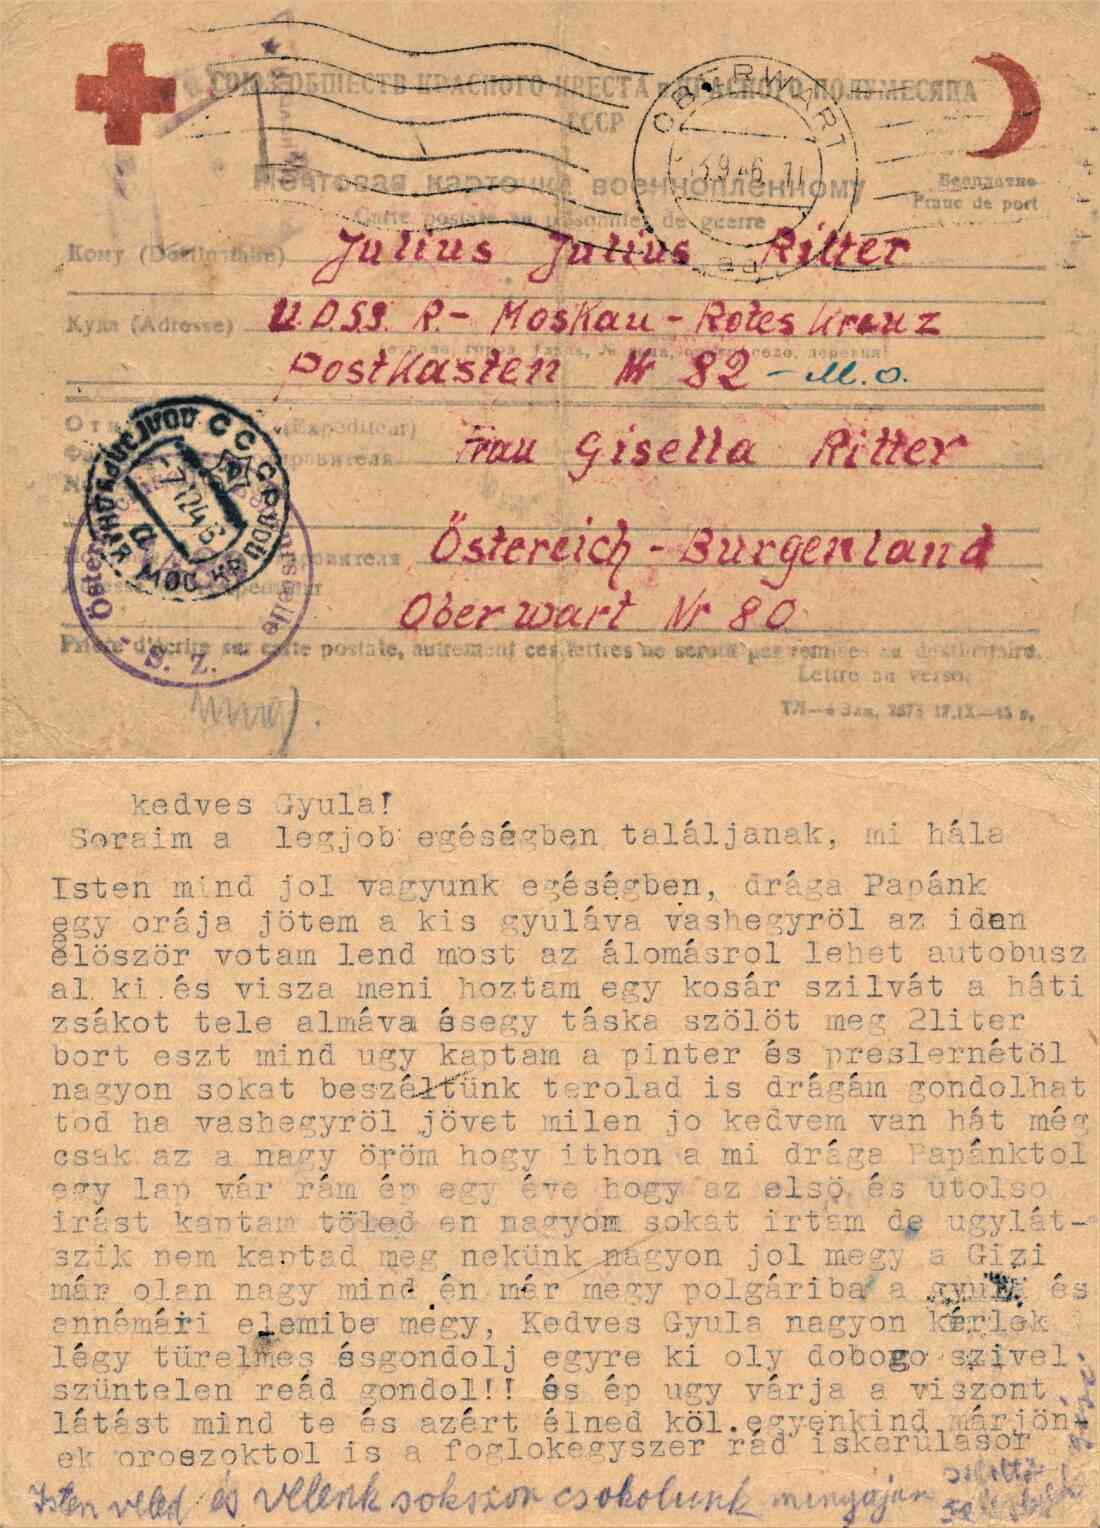 СОЮЗ ОБЩЕСТВ КРАСНОГО КРЕСТА и КРАСНОГО ПОЛУМЕСЯЦА
СССР
OBERWART
13.9.46. 11
Почтовая карточка военнопленному
Carte postale au prisonnier de guerre
Бесплатно
Franc de port
Кому (Destinataire) Julius Julius Ritter
Куда (Adresse) U.D.S.S. R.- Moskau - Rotes Kreuz
Postkasten Nr 82 - M.o.
(Expediteur)
Frau Gisella Ritter
Österreich - Burgenland
Oberwart Nr 80
МОСКВА
S. Z.
Prière d'écrire sur carte postale, autrement ces lettres ne seront pas remises au destinataire.
Lettre au verso.
17.IX—45 г.
kedves Gyula!
Soraim a legjob egéségben találjanak, mi hála
Isten mind jol vagyunk egéségben, drága Papánk
egy orája jötem a kis gyuláva vashegyröl az iden
elöször votam lend most az álomásrol lehet autobusz
al ki és visza meni hoztam egy kosár szilvát a háti
zsákot tele almáva ésegy táska szölöt meg 2liter
bort eszt mind ugy kaptam a pinter és preslernétöl
nagyon sokat beszéltünk terolad is drágám gondolhat
tod ha vashegyröl jövet milen jo kedvem van hát még
csak az a nagy öröm hogy ithon a mi drága Papánktol
egy lap vár rám ép egy éve hogy az elsö és utolso
irást kaptam töled en nagyom sokat irtam de ugylát-
szik nem kaptad meg nekünk nagyon jol megy a Gizi
már olan nagy mind én már megy polgáriba a gyula és
annémári elemibe megy, Kedves Gyula nagyon kérlek
légy türelmes ésgondolj egyre ki oly dobogo szivel
szüntelen reád gondol!! és ép ugy várja a viszont
látást mind te és azért élned köl.egyenkind márjön
ek oroszoktol is a foglokegyszer rád iskerülasor
Isten veled és velenk sokszor csokolunk minyájan